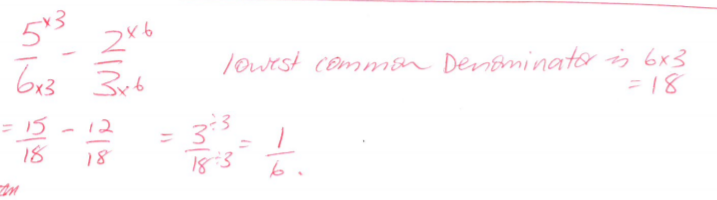 5×3/6×3 - 2×6/3×6 lowest common Denominator is 6×3
= 18
= 15/18 - 12/18 = 3÷3/18÷3 = 1/6.